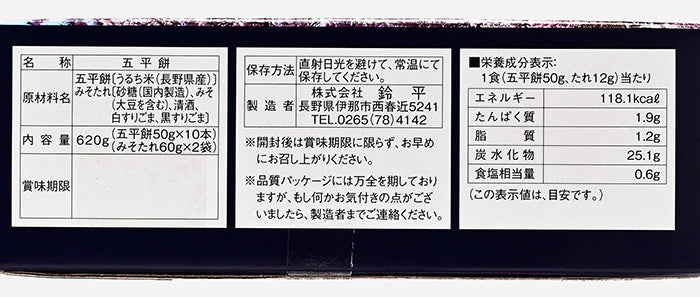 名称 五平餅
原材料名 五平餅〔うるち米(長野県産)〕
みそたれ〔砂糖(国内製造)、みそ
(大豆を含む)、清酒、
白すりごま、黒すりごま〕
内容量 620g(五平餅50g×10本)
(みそたれ60g×2袋)
賞味期限
保存方法 直射日光を避けて、常温にて
保存してください。
製造者 株式会社 鈴平
長野県伊那市西春近5241
TEL.0265(78)4142
※開封後は賞味期限に限らず、お早め
にお召し上がりください。
※品質パッケージには万全を期しており
ますが、もし何かお気付きの点がござ
いましたら、製造者までご連絡ください。
■栄養成分表示:
1食(五平餅50g、たれ12g)当たり
エネルギー 118.1kcal
たんぱく質 1.9g
脂質 1.2g
炭水化物 25.1g
食塩相当量 0.6g
(この表示値は、目安です。)